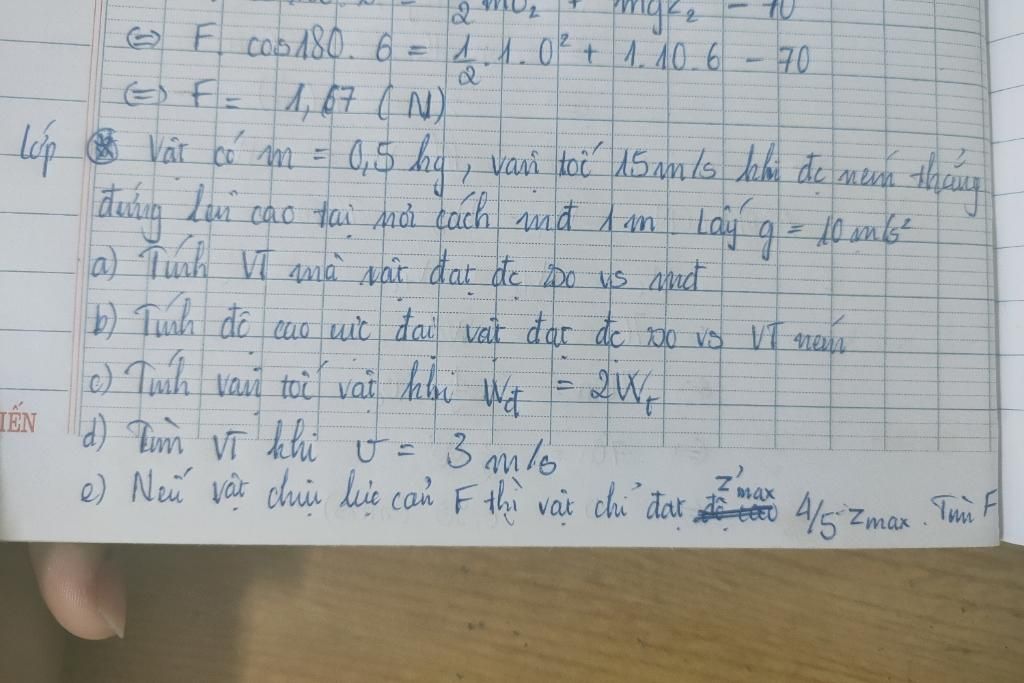 ½mv₂² + mgz₂ - 70
⇔ F. cos180. 6 = ½.1.0² + 1.10.6 - 70
⇔ F = 1,67 (N)
Lớp Vật có m = 0,5 kg, vận tốc 15m/s khi đc ném thẳng
đứng lên cao tại nơi cách mđ 1m. Lấy g = 10m/s²
a) Tính VT mà vật đạt đc so vs mđ
b) Tính độ cao cực đại vật đạt đc so vs VT ném
c) Tính vận tốc vật khi Wđ = 2Wt
IẾN
d) Tìm VT khi v = 3 m/s
e) Nếu vật chịu lực cản F thì vật chỉ đạt z'max 4/5 zmax. Tìm F